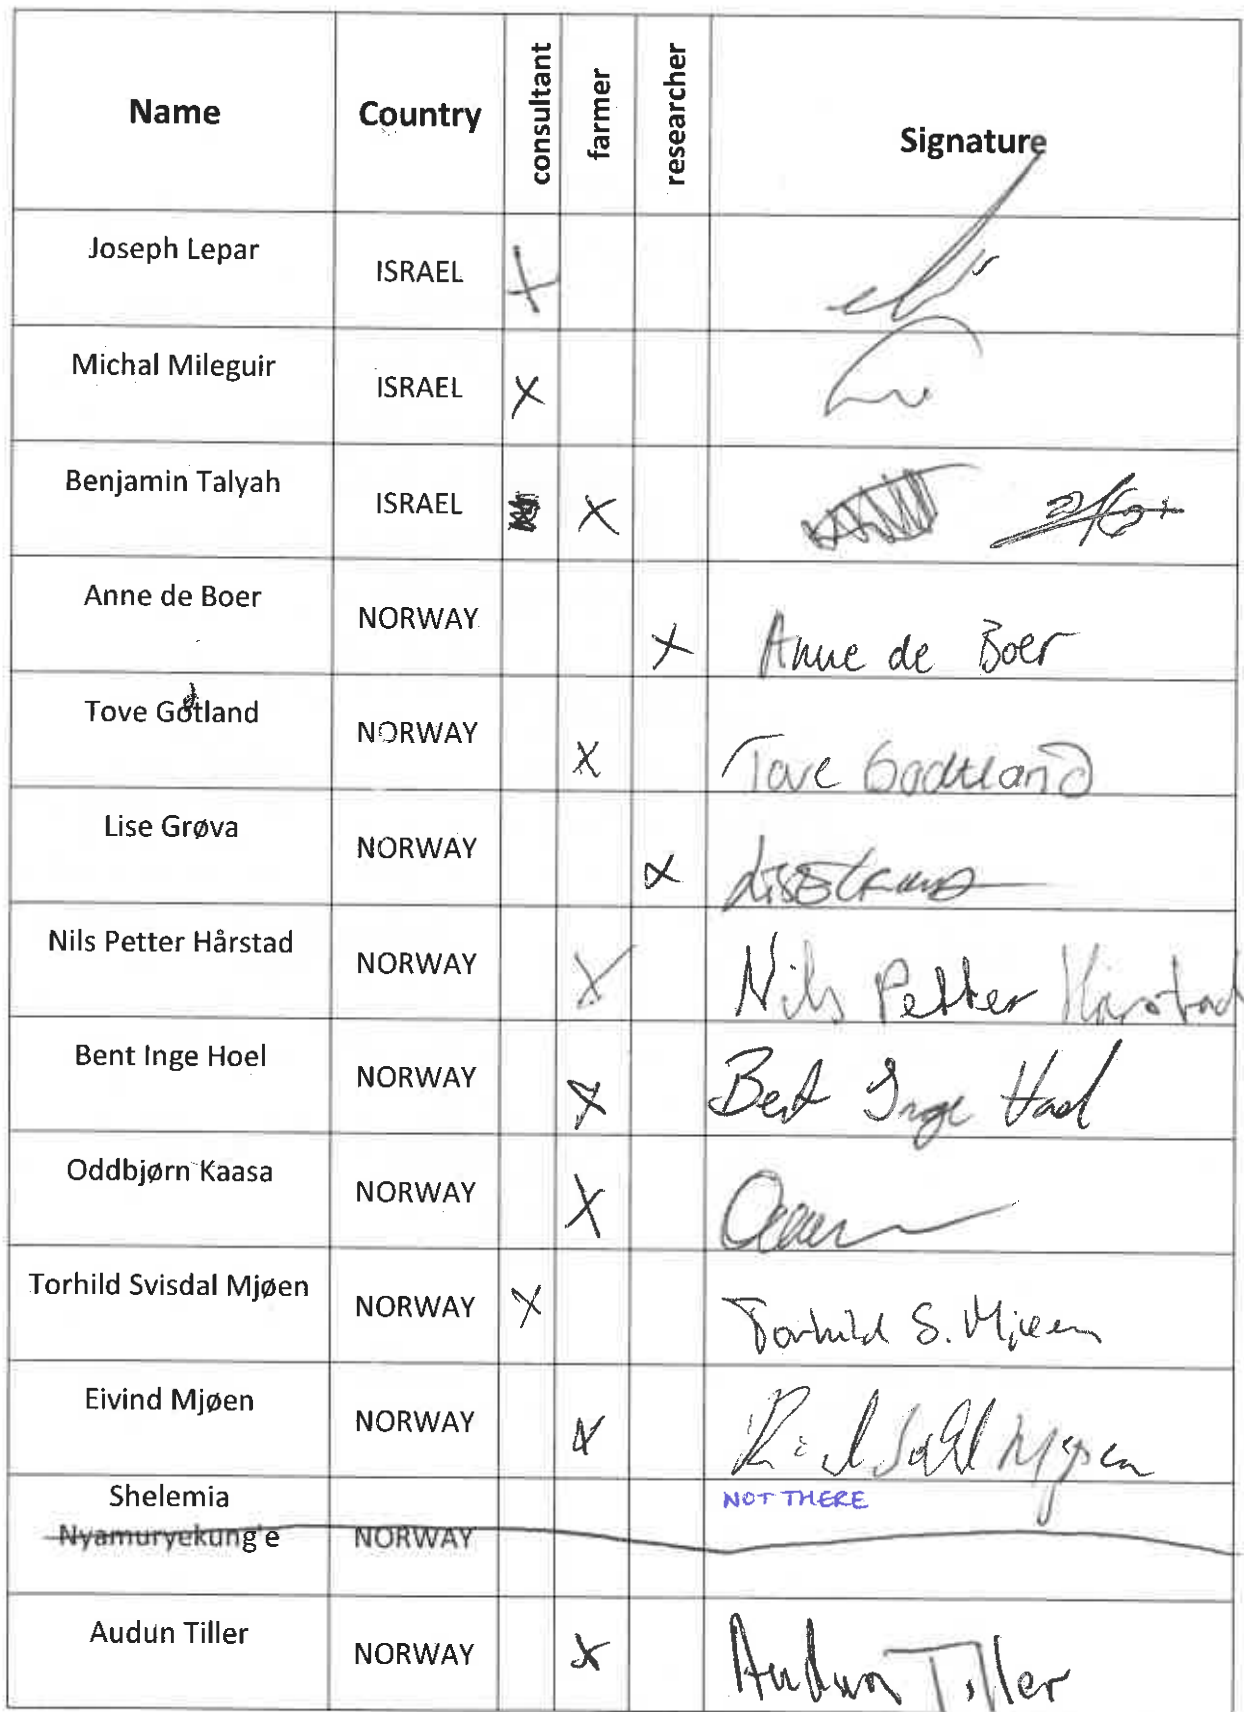 Name Country consultant farmer researcher Signature
Joseph Lepar ISRAEL X
Michal Mileguir ISRAEL X
Benjamin Talyah ISRAEL X
Anne de Boer NORWAY X Anne de Boer
Tove Gotland d NORWAY X Tove Godtland
Lise Grøva NORWAY X
Nils Petter Hårstad NORWAY X Nils Petter Hårstad
Bent Inge Hoel NORWAY X Bent Inge Hoel
Oddbjørn Kaasa NORWAY X
Torhild Svisdal Mjøen NORWAY X Torhild S. Mjøen
Eivind Mjøen NORWAY X Mjøen
Shelemia NOT THERE
Nyamuryekung'e NORWAY
Audun Tiller NORWAY X Audun Tiller